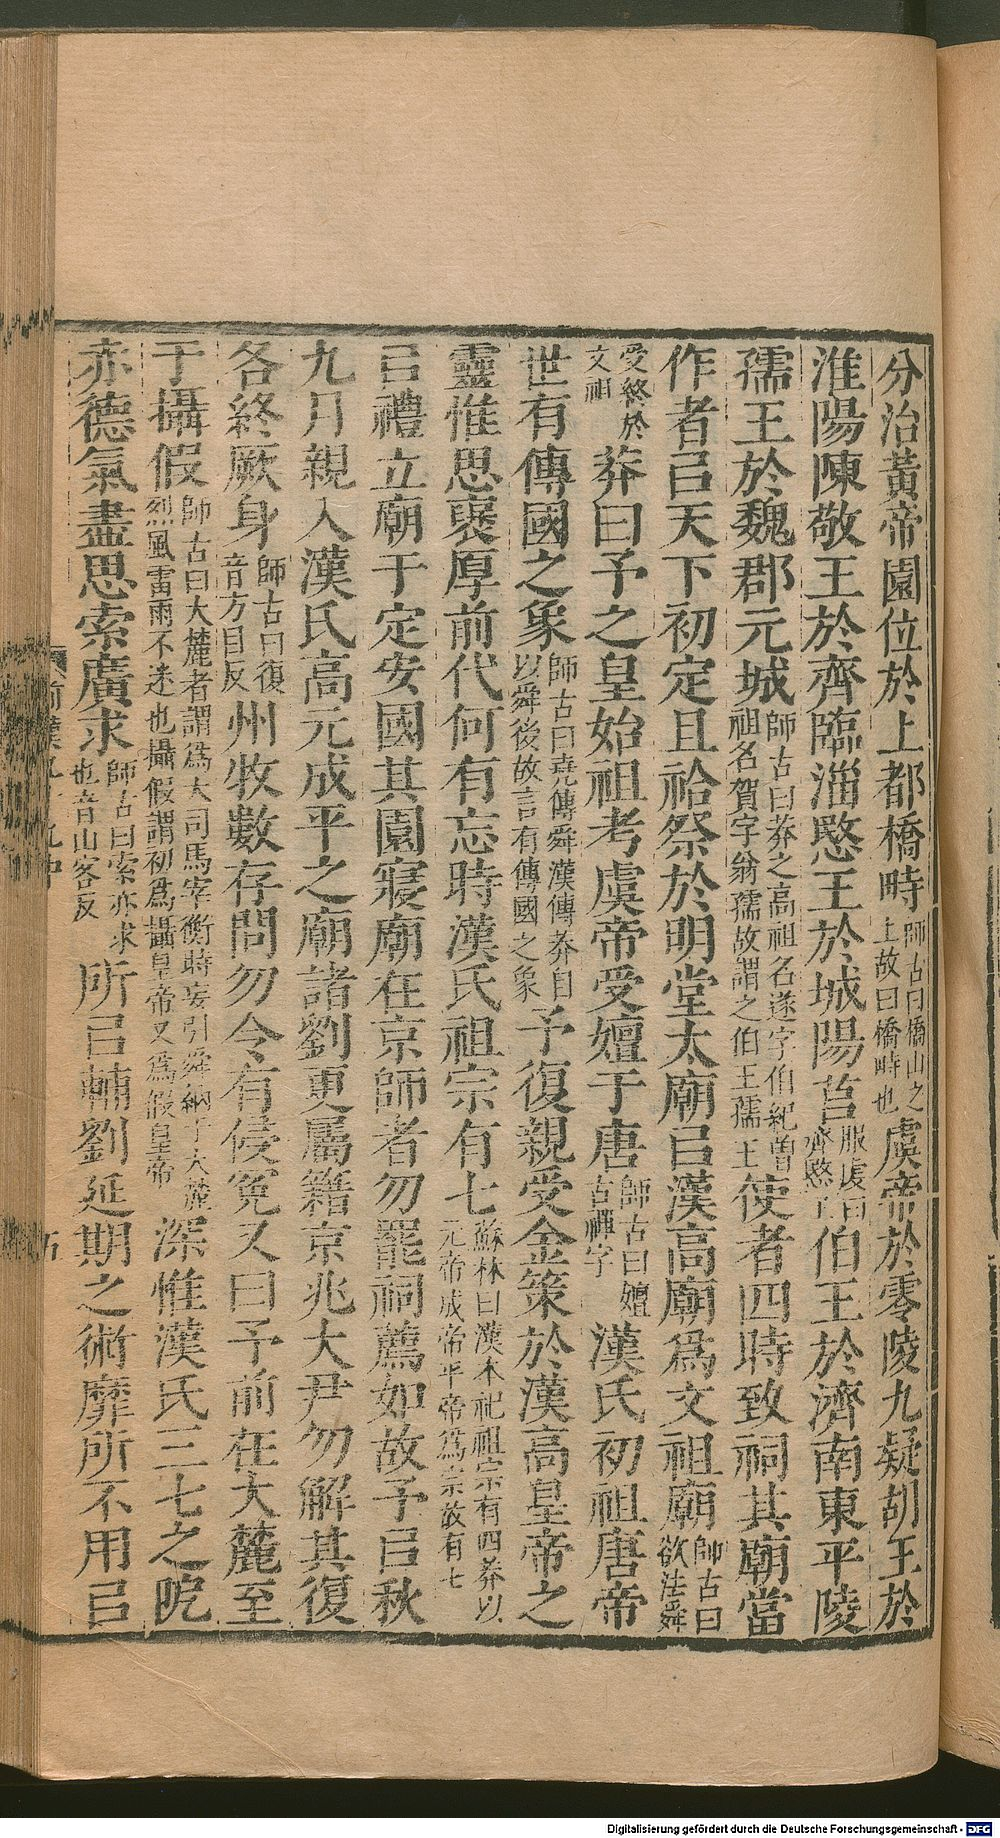 分治黃帝園位於上都橋畤師古曰橋山之上故曰橋畤也虞帝於零陵九疑胡王於
淮陽陳敬王於齊臨淄愍王於城陽莒服虔曰齊愍王伯王於濟南東平陵
孺王於魏郡元城師古曰莽之高祖名遂字伯紀曾祖名賀字翁孺故謂之伯王孺王使者四時致祠其廟當
作者㠯天下初定且祫祭於明堂太廟㠯漢高廟爲文祖廟師古曰欲法舜
受終於文祖莽曰予之皇始祖考虞帝受嬗于唐師古曰嬗古禪字漢氏初祖唐帝
世有傳國之象師古曰堯傳舜漢傳莽自以舜後故言有傳國之象予復親受金策於漢高皇帝之
靈惟思襃厚前代何有忘時漢氏祖宗有七蘇林曰漢本祀祖宗有四莽以元帝成帝平帝爲宗故有七
㠯禮立廟于定安國其園寢廟在京師者勿罷祠薦如故予㠯秋
九月親入漢氏高元成平之廟諸劉更屬籍京兆大尹勿解其復
各終厥身師古曰復音方目反州牧數存問勿令有侵冤又曰予前在大麓至
于攝假師古曰大麓者謂爲大司馬宰衡時妄引舜納于大麓烈風雷雨不迷也攝假謂初爲攝皇帝又爲假皇帝深惟漢氏三七之阸
赤德氣盡思索廣求師古曰索亦求也音山客反所㠯輔劉延期之術靡所不用㠯
Digitalisierung gefördert durch die Deutsche Forschungsgemeinschaft - DFG